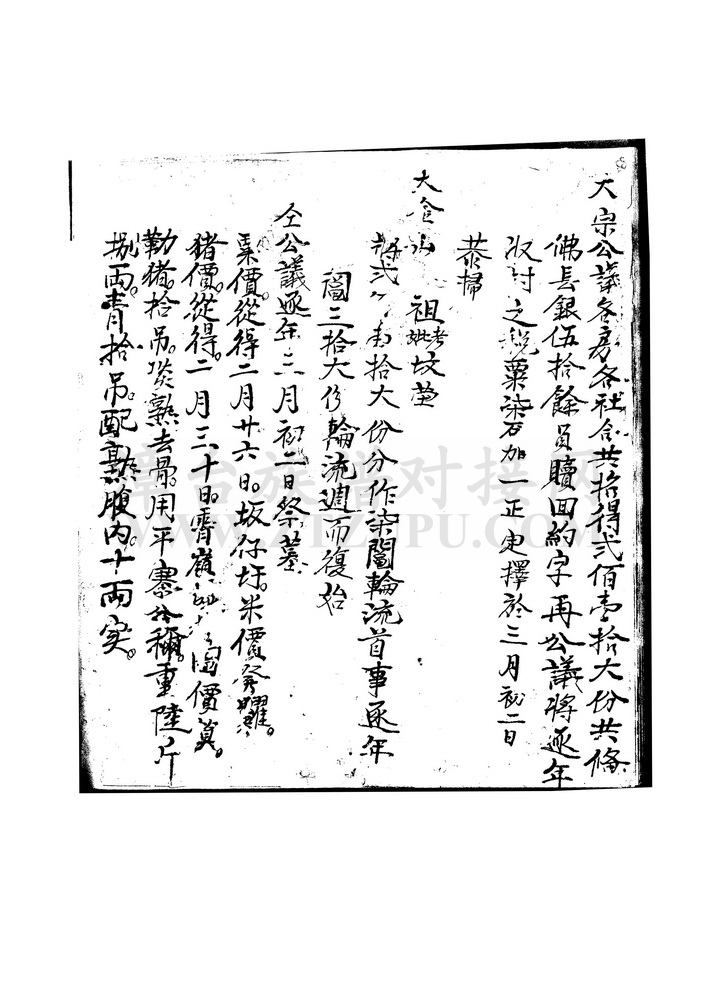 大宗公議各房各社合共拾得弍佰壹拾大份共條
佛長銀伍拾餘員贖回約字再公議將逐年
收 之税粟柒石加一正定擇於三月初二日
恭掃
大 山祖考妣坟塋
將弍 壹拾大份分作柒鬮輪流首事逐年
鬮三拾大份輪流週而復始
仝公議逐年三月初二日祭墓
粟價從得二月廿六日坂仔圩米價發糶
猪價從得二月三十日霄嶺 價算
勤猪拾吊煑熟去骨用平寨 稱重陸斤
捌兩青拾吊配熟腹内十両实
台族 对接网
WWW. ZUPU.COM